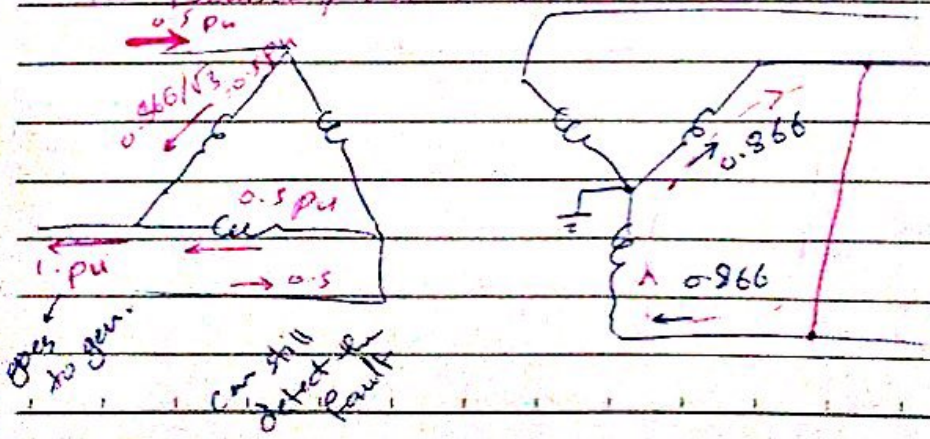 0.5 pu
0.866/√3, 0.5pu
0.5 pu
1. pu
→ 0.5
goes
to gen.
can still
detect the
fault
0.866
0.866